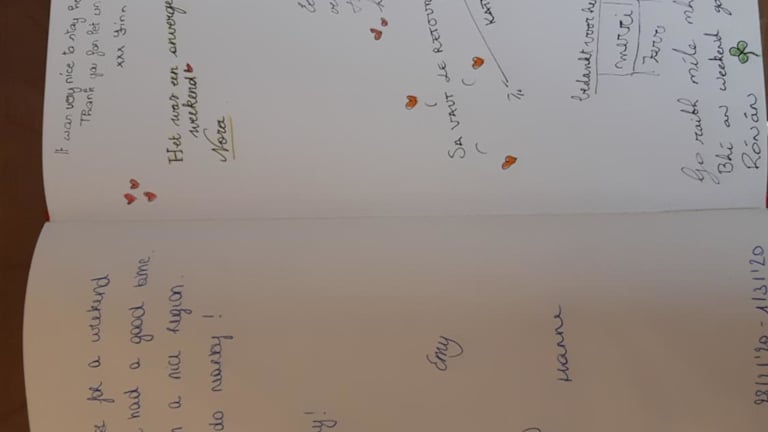 for a weekend
had a good time.
a nice region.
do nearby !
Emy
Hanne
It was very nice to stay
Thank you for let
xxx Finn
Het was een onverge
weekend
Nora
SA VAUT LE RETOUR
KAT
bedankt voor he
merci!
Go raibh míle mh
Bhí an weekend go
Rónán